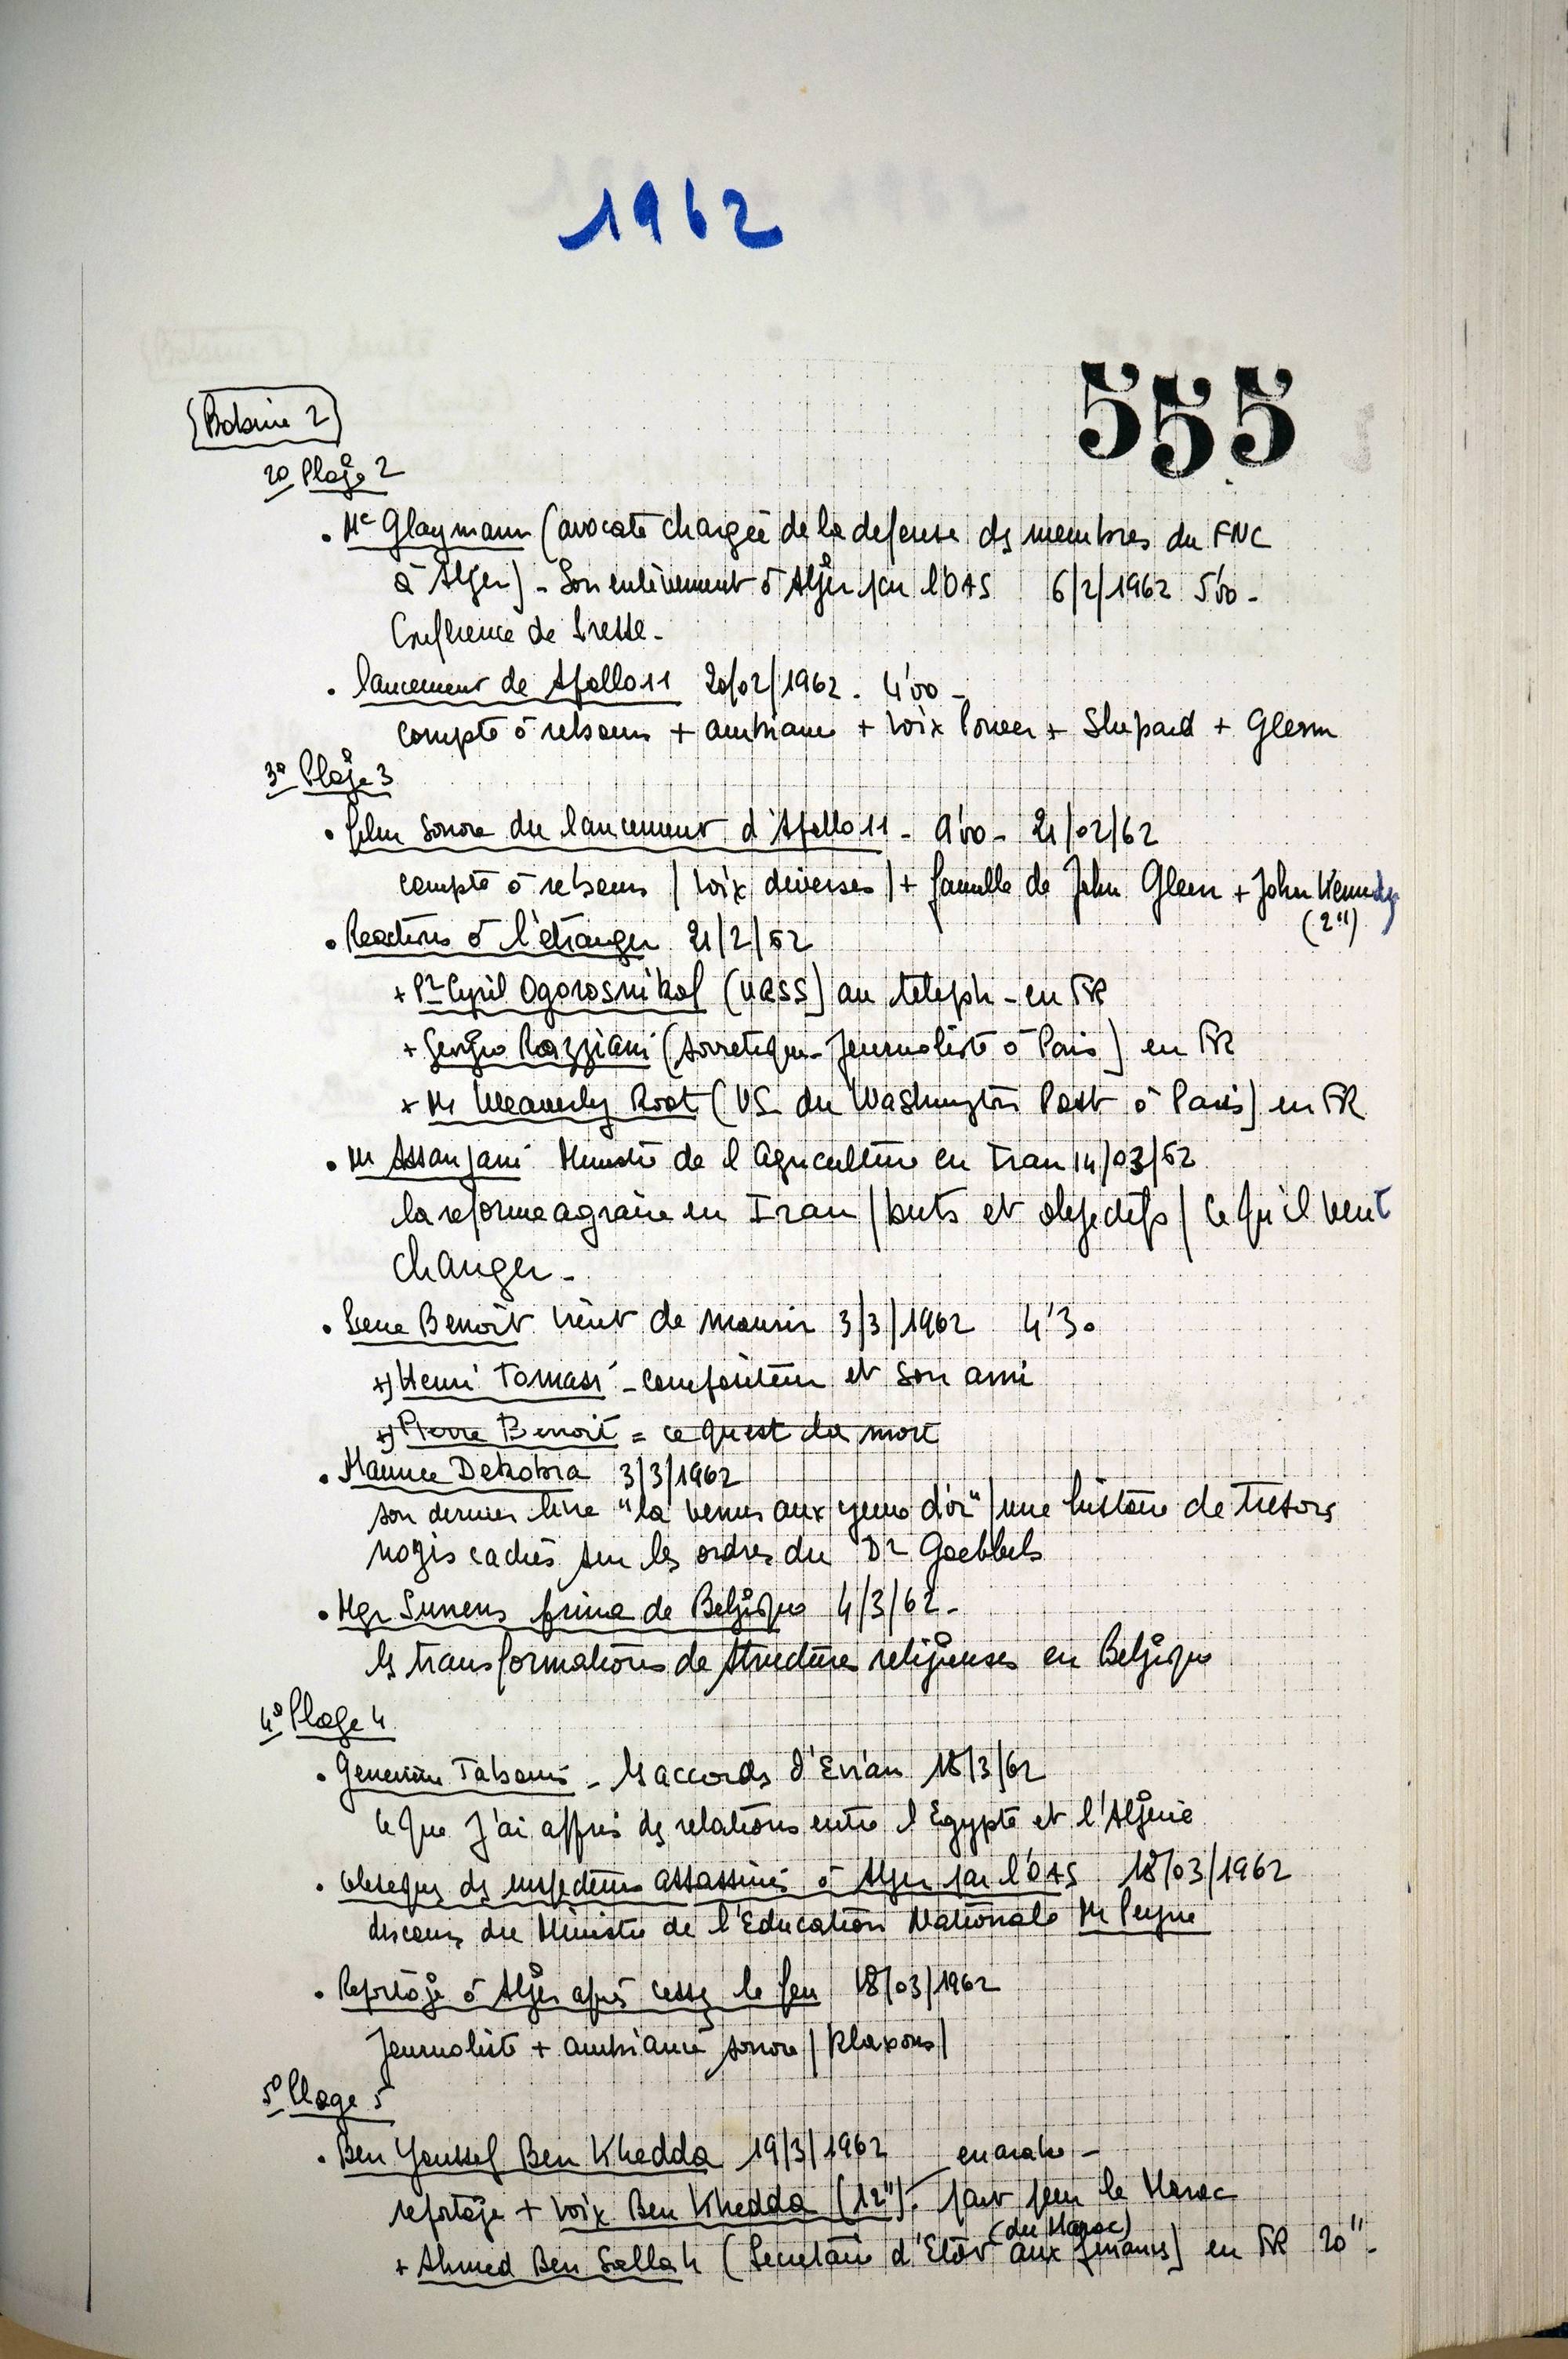 1962
555
Bobine 2
2º Plage 2
. Me Glaymann (avocate chargée de la defense ds membres du FNC
à Alger) - Son enlèvement à Alger par l'OAS 6/2/1962 5'00 -
Conference de Presse -
. lancement de Apollo 11 20/02/1962 . 4'00 -
compte à rebours + ambiance + voix Power + Shepard + Glenn
3º Plage 3
. film sonore du lancement d'Apollo 11 - 9'00 - 21/02/62
compte à rebours / voix diverses / + famille de John Glenn + John Kennedy
(2")
. Reactions à l'étranger 21/2/62
+ Pr Cyril Ogorosnikof (URSS) au teleph - en FR
+ Sergio Razziani ( Journaliste à Paris) en FR
+ Mr Weaverly Root (US du Washington Post à Paris) en FR
. Mr Assanjani Ministre de l'Agriculture en Iran 14/03/62
la reforme agraire en Iran / buts et objectifs / ce qu'il veut
changer -
. Benoît vient de mourir 3/3/1962 4'30
+) Henri Tomasi - compositeur et son ami
+) Pierre Benoit = ce qu'est du mort
. Maurice Dekobra 3/3/1962
son dernier livre "la venus aux yeux d'or" / une histoire de tresors
nazis cachés sur les ordres du Dr Goebbels
. Mgr Sunens primat de Belgique 4/3/62 -
ls transformations de structures religieuses en Belgique
4º Plage 4
. Genevieve Tabouis - ls accords d'Evian 18/3/62
ce que j'ai appris ds relations entre l'Egypte et l'Algerie
. obseques ds inspecteurs assassinés à Alger par l'OAS 18/03/1962
discours du Ministre de l'Education Nationale Mr Peyre
. Reportage à Alger après cessez le feu 18/03/1962
Journaliste + ambiance sonore / Klaxons /
5º Plage 5
. Ben Youssef Ben Khedda 19/3/1962 en arabe -
reportage + voix Ben Khedda (12"). part pour le Maroc
(du Maroc)
+ Ahmed Ben Sallah (Secretaire d'Etat aux finances) en FR 20" -